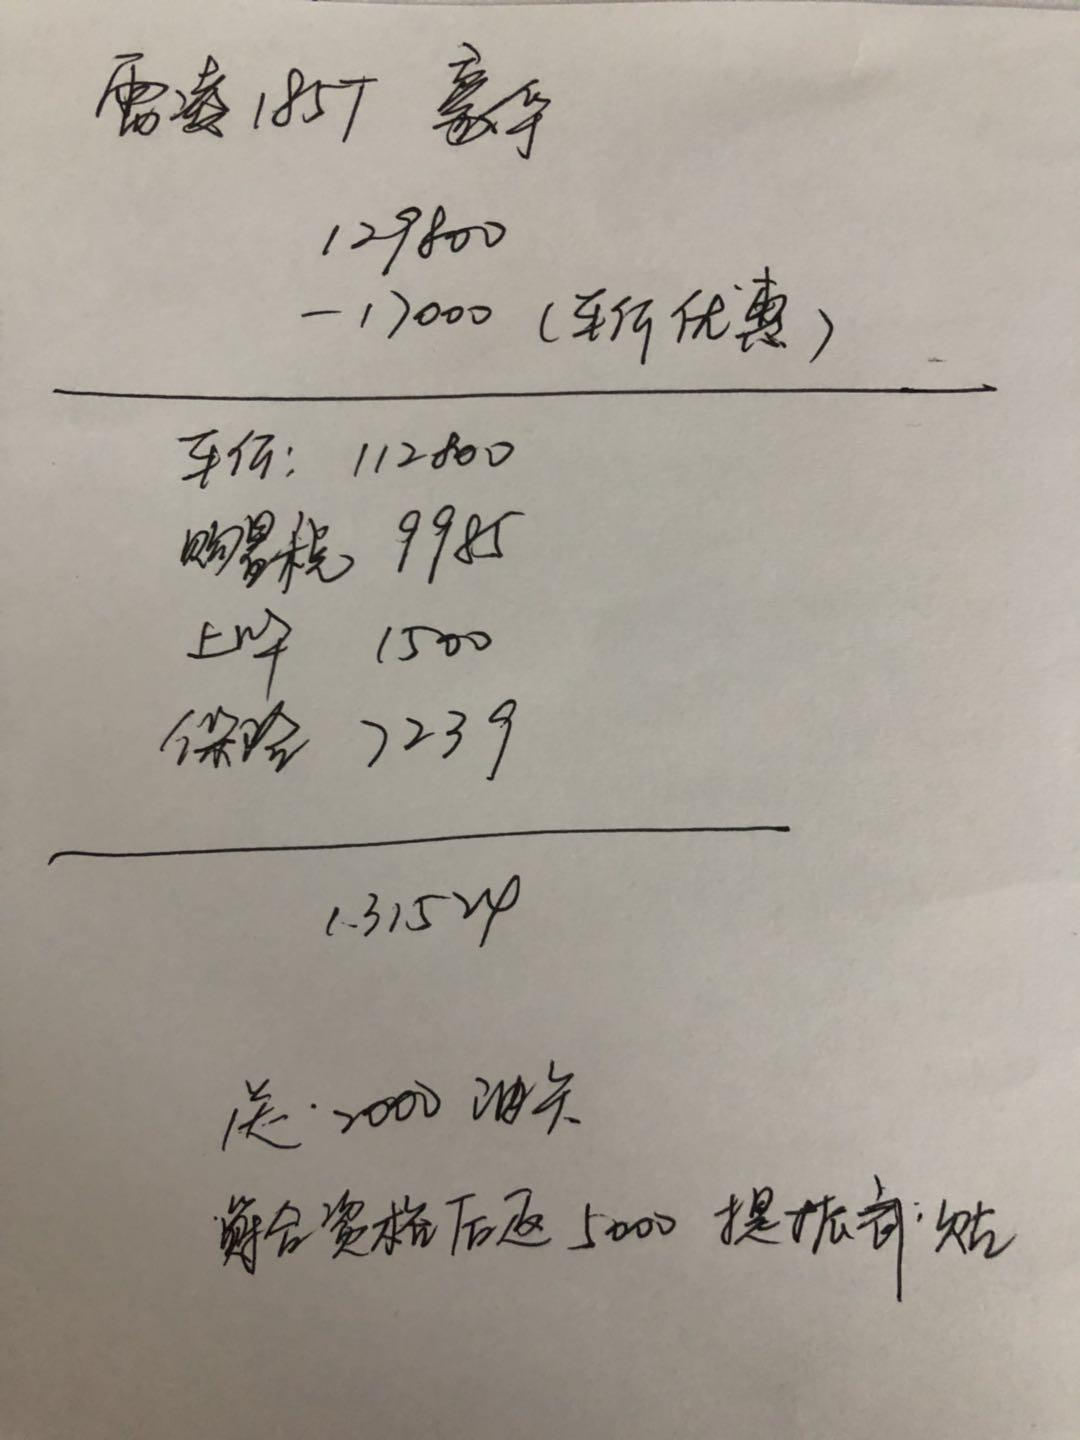 雷凌185T 豪华
129800
-17000 (车价优惠)
车价: 112800
购置税 9985
上牌 1500
保险 7239
131524
送:2000 油卡
符合资格后返 5000 提振消费补贴